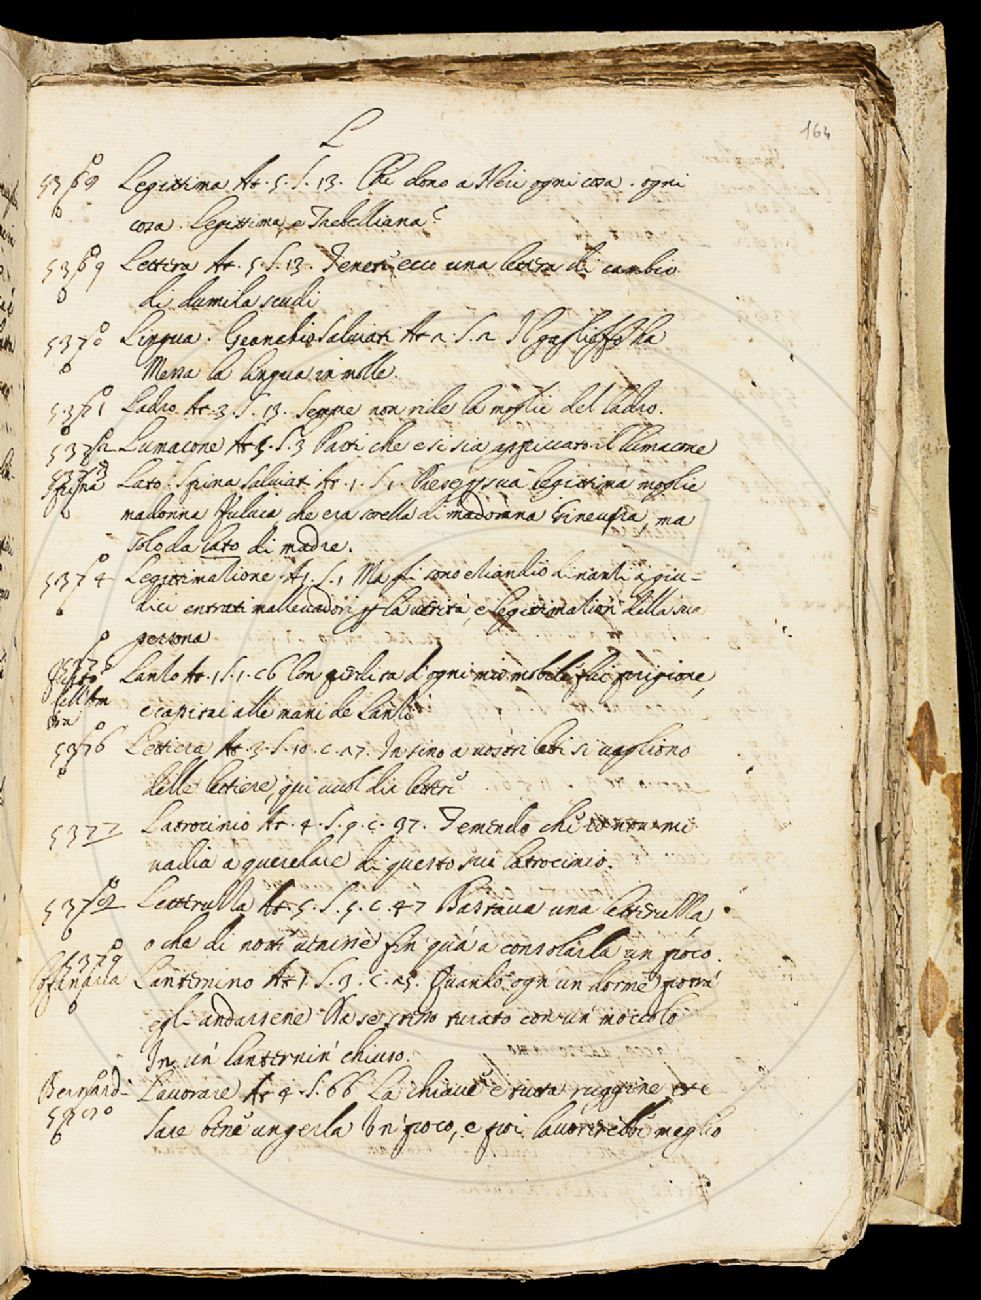 L
164
5369 Legittima At. 5. S. 13. Che dono a Neri ogni cosa. ogni
cosa. Legittima, e Trebelliana?
5369 Lettera At. 5. S. 13. Tenete ecco una lettera di cambio
di dumila scudi
5370 Lingua. Granchio Salviati At 2. S. 2 Il gaglioffo ha
Messa la lingua in molle.
5371 Ladro At. 3. S. 13. Sempre non ride la moglie del ladro.
5372 Lumacone At 5. S. 3 Parti che e si sia appiccato il lumacone
5373 Lato. Spina Salviati At. 1. S. 1. sua legittima moglie
Spina
madonna Fulvia che era sorella di madonna Ginevra, ma
solo da lato di madre.
5374 Legittimatione. At. 1. S. 1 Ma si sono etiandio dinanti a giu-
dici entrati mallevadori p la verità, e legittimation della sua
persona
5375 Lanzo At. 1 S. 1. c6 Con perdita d'ogni mio mobile fui prigione,
e capitai alle mani de Lanzi
5376 Lettiera At. 3. S. 10. c. 27. Insino a nostri letti si vogliono
delle lettiere, qui vuol dir lettere
5377 Latrocinio At. 4. S. 9. c. 37. Temendo che io non mi
vadia a querelare di questo suo latrocinio.
5378 Letterulla At. 5. S. 5. c. 47 Bastava una letterulla
o che di notte venisse fin quà a consolarla un poco.
5379 Lanternino At 1. S. 3. c. 25. Quando ogn un dorme potrà
egli andarsene turato con un moccolo
In un lanternin chiuso.
Bernardi- Lavorare At 4. S. 66 La chiave è tutta ruggine
sare bene ungerla un poco, e poi lavorerebbe meglio